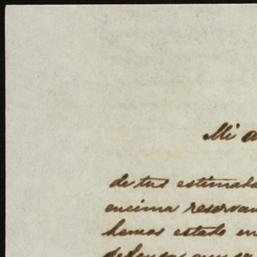 Mi a
de tus estimada
encima reservan
hemos estado en